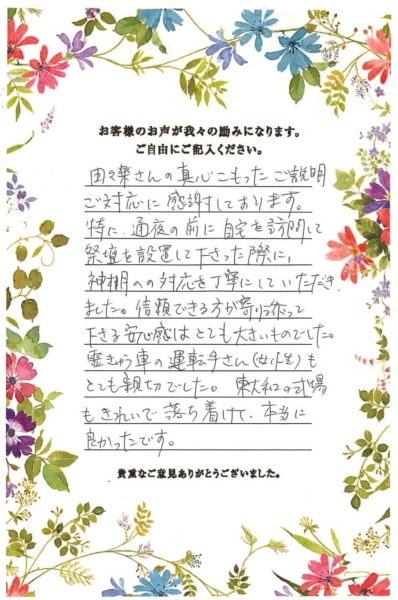 お客様のお声が我々の励みになります。
ご自由にご記入ください。
由々楽さんの真心こもったご説明
ご対応に感謝しております。
特に、通夜の前に自宅を訪問して
祭壇を設置して下さった際に、
神棚への対応を丁寧にしていただき
ました。信頼できる方が寄り添って
下さる安心感はとても大きいものでした。
霊きゅう車の運転手さん(女性)も
とても親切でした。東大和の式場
もきれいで落ち着けて、本当に
良かったです。
貴重なご意見ありがとうございました。